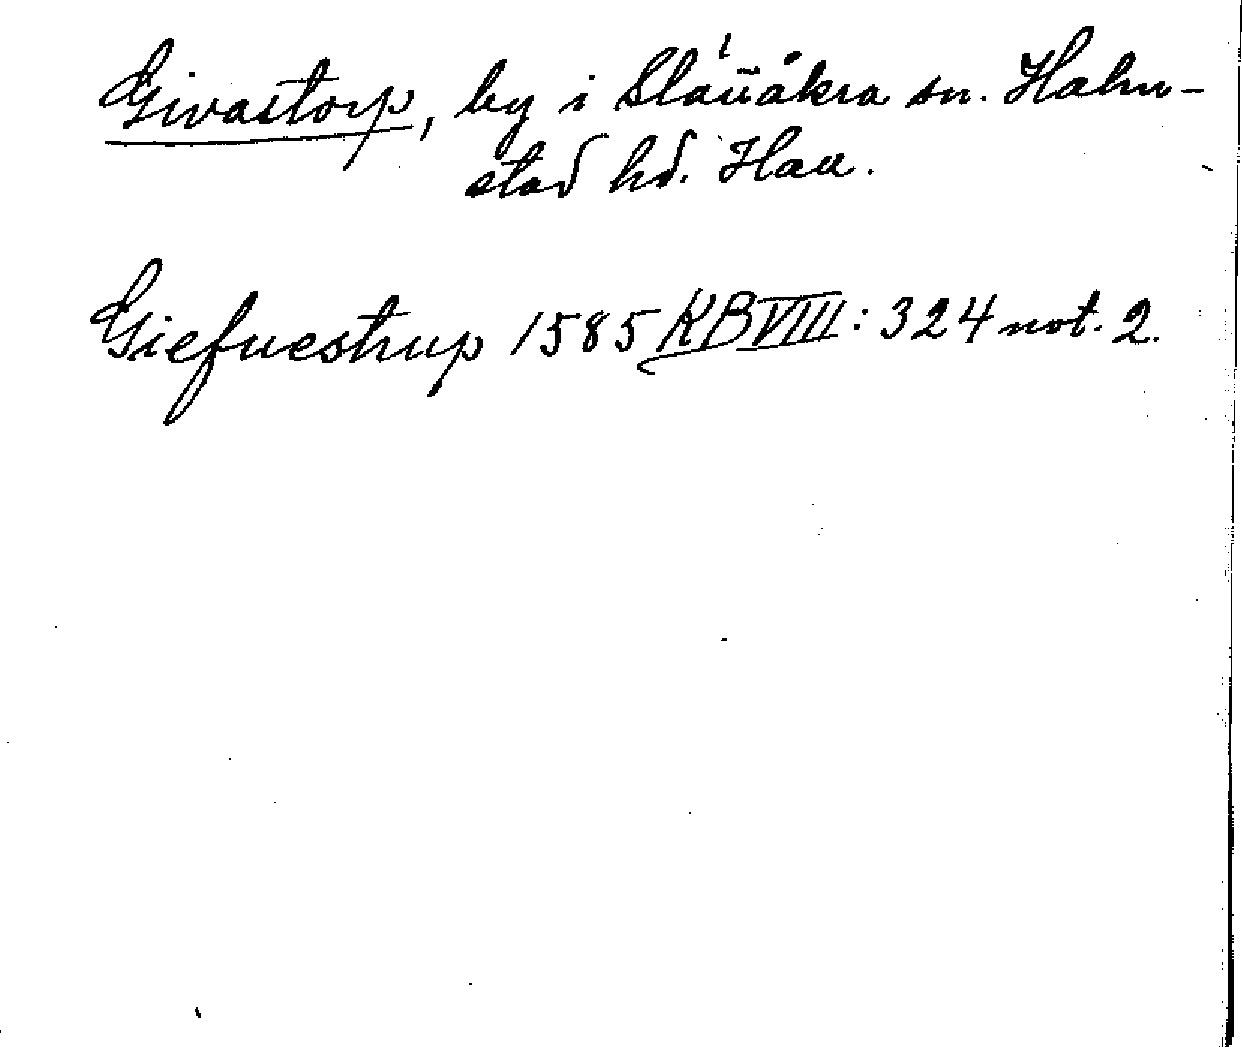 Givastorp, by i Slättåkra sn. Halm-
stad hd. Hall.
Giefuestrup 1585 KB VIII: 324 not. 2.